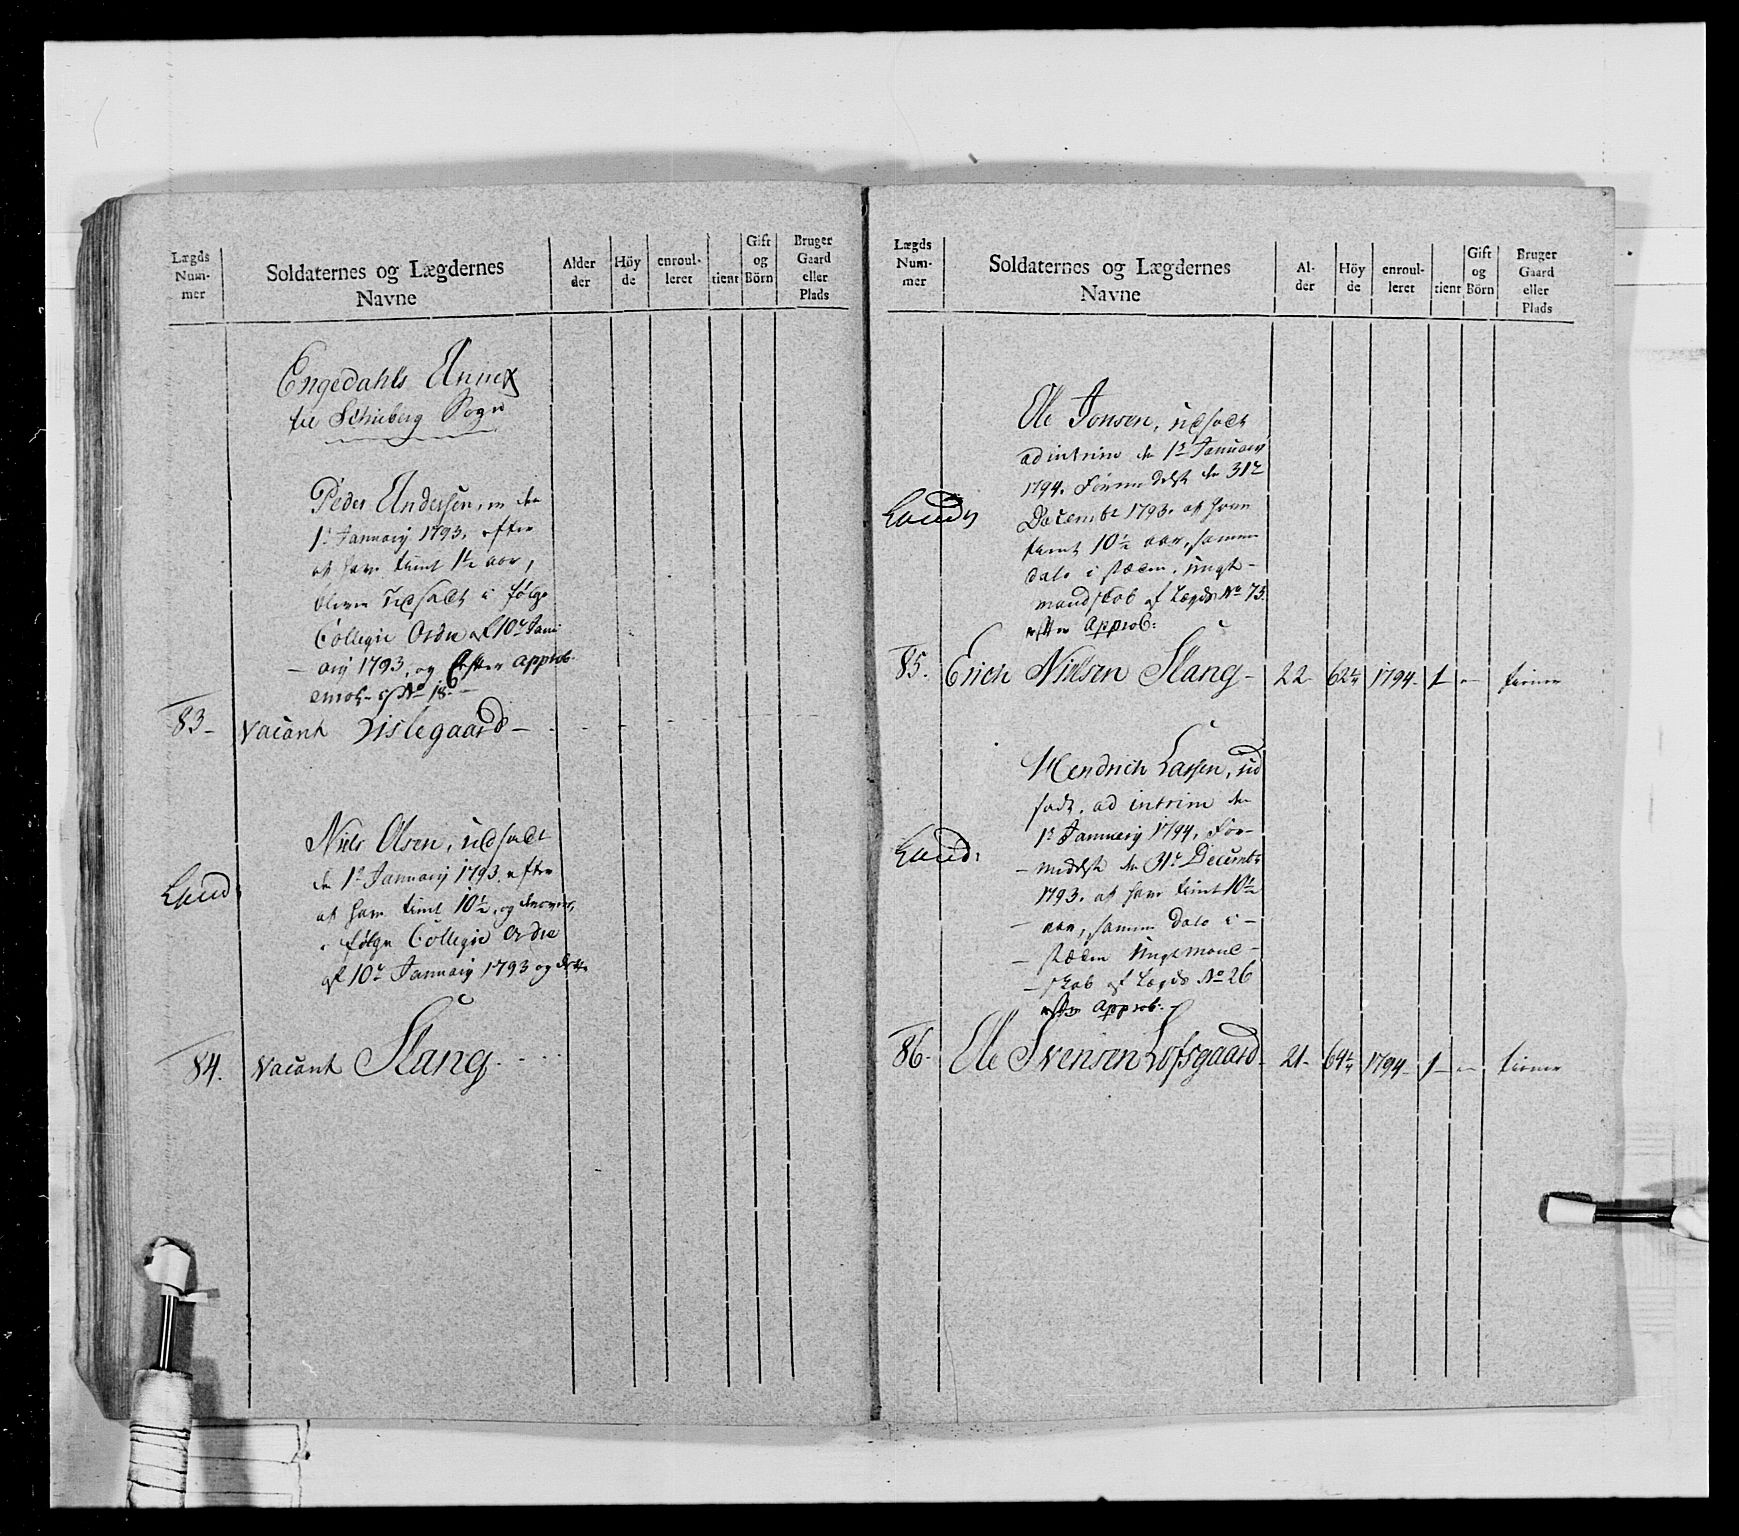 Lægds
Num-
mer
Soldaternes og Lægdernes
Navne
Alder
der
Höy
de
enroul-
leret
tient
Gift
og
Börn
Bruger
Gaard
eller
Plads
Engedahls Annex
til Schieberg Sogn
Peder Andersen, er den
1ste January 1793, efter
at have tient 1½ aar,
bleven Udsadt i følge
Collegie Ordre af 10de Janu
arij 1793, og efter approb.
No 18
83 Vacant Lislegaard
Niels Olsen, udsadt
den 1ste January 1793 efter
Land
at have tient 10½, og
i følge Collegie Ordre
af 10de January 1793 og
84. Vacant Slang
Lægds
Num-
mer
Soldaternes og Lægdernes
Navne
Al-
der
Höy
de
enroul-
leret
tient
Gift
og
Börn
Bruger
Gaard
eller
Plads
Ole Jonsen, udsadt
ad intrim den 1ste January
1794. den 31te
Land
Decembr 1793. at have
tient 10½ aar, samme
dato i stæden, ungt-
mandskab af Lægds No 73.
efter Approb:
85. Erich Nielsen Slang 22 62½ 1794 1
Hendrich Lassen, ud
sadt, ad intrim den
1ste January 1794, For-
Land:
meedelst den 31te Decembr
1793. at have tient 10½
aar, samme Dato i
stæden Ungtmand-
skab af Lægds No 26
efter Approb:
86. Ole Svensen Lofsgaard 21 64½ 1794 1